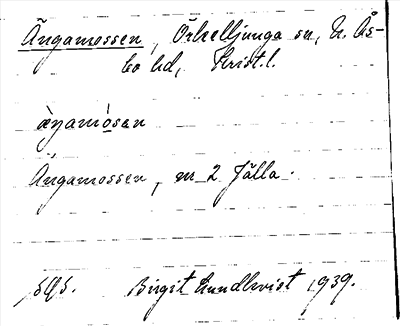 Ängamossen, Örkelljunga sn, N. Ås-
bo hd, Krist.l.
àŋamo̱san
Ängamossen, m 2 Fjälla.
Birgit Lundkvist 1939.